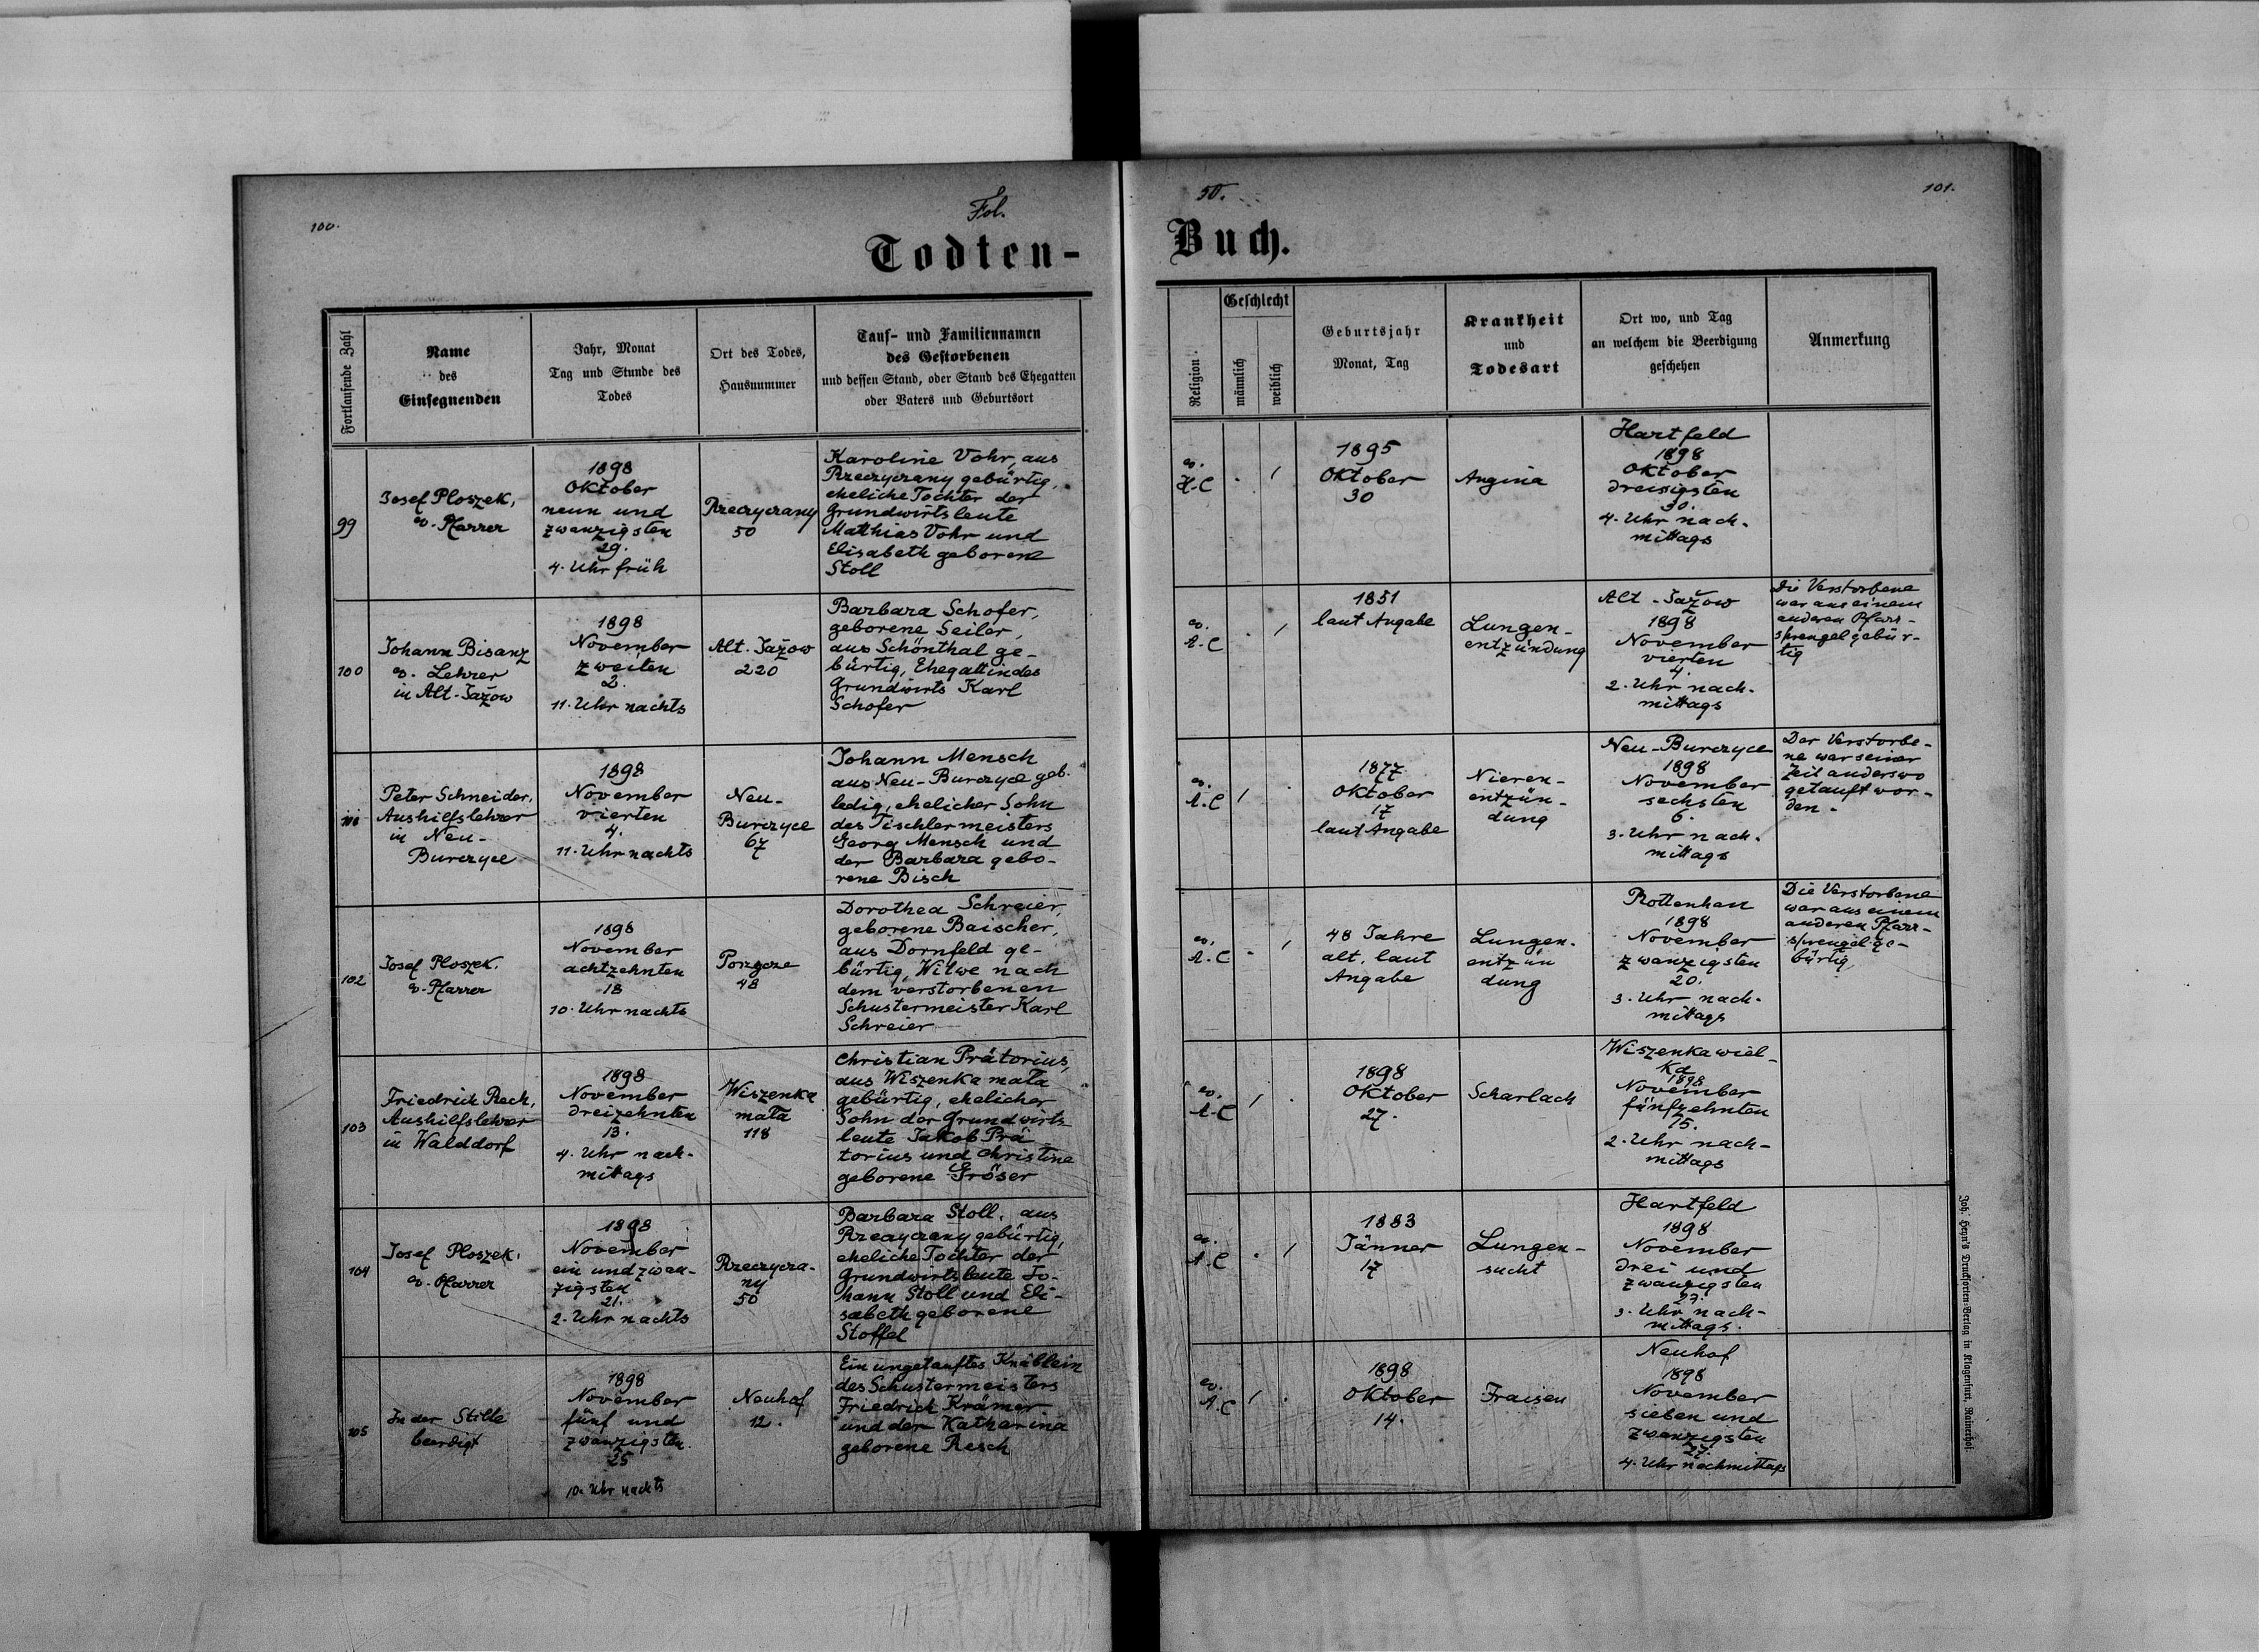 100.
Fol.
50.
101.
Todten-
Buch.
Fortlaufende Zahl
Name
des
Einsegnenden
Jahr, Monat
Tag und Stunde des
Todes
Ort des Todes,
Hausnummer
Tauf- und Familiennamen
des Gestorbenen
und dessen Stand, oder Stand des Ehegatten
oder Vaters und Geburtsort
Religion
Geschlecht
männlich
weiblich
Geburtsjahr
Monat, Tag
Krankheit
und
Todesart
Ort wo, und Tag
an welchem die Beerdigung
geschehen
Anmerkung
99
Josef Ploszek,
ev. Pfarrer
1898
Oktober
neun und
zwanzigsten
29.
4. Uhr früh
Rzeczyczany
50
Karoline Vohr, aus
Rzeczyczany gebürtig,
eheliche Tochter der
Grundwirtsleute
Matthias Vohr und
Elisabeth geborene
Stoll
ev.
H.C
1895
Oktober
30
Angina
Hartfeld
1898
Oktober
dreisigsten
30.
4. Uhr nach-
mittags
100
Johann Bisanz
ev. Lehrer
in Alt-Jažow
1898
November
zweiten
2.
11. Uhr nachts
Alt-Jažow
220
Barbara Schofer,
geborene Seiler,
aus Schönthal ge-
bürtig, Ehegattin des
Grundwirts Karl
Schofer
ev.
A.C
1851
laut Angabe
Lungen-
entzündung
Alt-Jažow
1898
November
vierten
4.
2. Uhr nach-
mittags
Die Verstorbene
war aus einem
anderen Pfarr-
sprengel gebür-
tig
101
Peter Schneider,
Aushilfslehrer
in Neu-
Burczyce
1898
November
vierten
4.
11. Uhr nachts
Neu-
Burczyce
67
Johann Mensch
aus Neu-Burczyce geb.
ledig, ehelicher Sohn
des Tischlermeisters
Georg Mensch und
der Barbara gebo-
rene Bisch
ev.
A.C
1877
Oktober
17
laut Angabe
Nieren-
entzün-
dung
Neu-Burczyce
1898
November
sechsten
6.
3. Uhr nach-
mittags
Der Verstorbe-
ne war seiner
Zeit anderswo
getauft wor-
den.
102
Josef Ploszek.
ev. Pfarrer
1898
November
achtzehnten
18
10. Uhr nachts
Porzecze
48
Dorothea Schreier,
geborene Baischer,
aus Dornfeld ge-
bürtig, Witwe nach
dem verstorbenen
Schustermeister Karl
Schreier
ev.
A.C
48 Jahre
alt, laut
Angabe
Lungen-
entzün
dung
Rottenhan
1898
November
zwanzigsten
20.
3. Uhr nach-
mittags
Die Verstorbene
war aus einem
anderen Pfarr-
sprengel ge-
bürtig
103
Friedrich Rech,
Aushilfslehrer
in Walddorf
1898
November
dreizehnten
13.
4. Uhr nach-
mittags
Wiszenka
mała
118
Christian Prätorius,
aus Wiszenka mała
gebürtig, ehelicher
Sohn der Grundwirts
leute Jakob Prä
torius und Christine
geborene Gröser
ev.
A.C
1898
Oktober
27.
Scharlach
Wiszenka wiel-
ka
1898
November
fünfzehnten
15.
2. Uhr nach-
mittags
104
Josef Ploszek,
ev. Pfarrer
1898
November
ein und zwan-
zigsten
21.
2. Uhr nachts
Rzeczycza-
ny
50
Barbara Stoll, aus
Rzeczyczany gebürtig,
eheliche Tochter der
Grundwirtsleute Jo-
hann Stoll und Eli-
sabeth geborene
Stoffel
ev.
A.C
1883
Jänner
17
Lungen-
sucht
Hartfeld
1898
November
drei und
zwanzigsten
23.
3. Uhr nach-
mittags.
105
In der Stille
beerdigt
1898
November
fünf und
zwanzigsten
25
10. Uhr nachts
Neuhof
12.
Ein ungetauftes Knäblein
des Schustermeisters
Friedrich Krämer
und der Katharina
geborene Resch
ev.
A.C
1898
Oktober
14.
Fraisen
Neuhof
1898
November
sieben und
zwanzigsten
27.
4. Uhr nachmittags
Joh. Heyn's Drucksorten-Verlag in Klagenfurt, Rainerhof